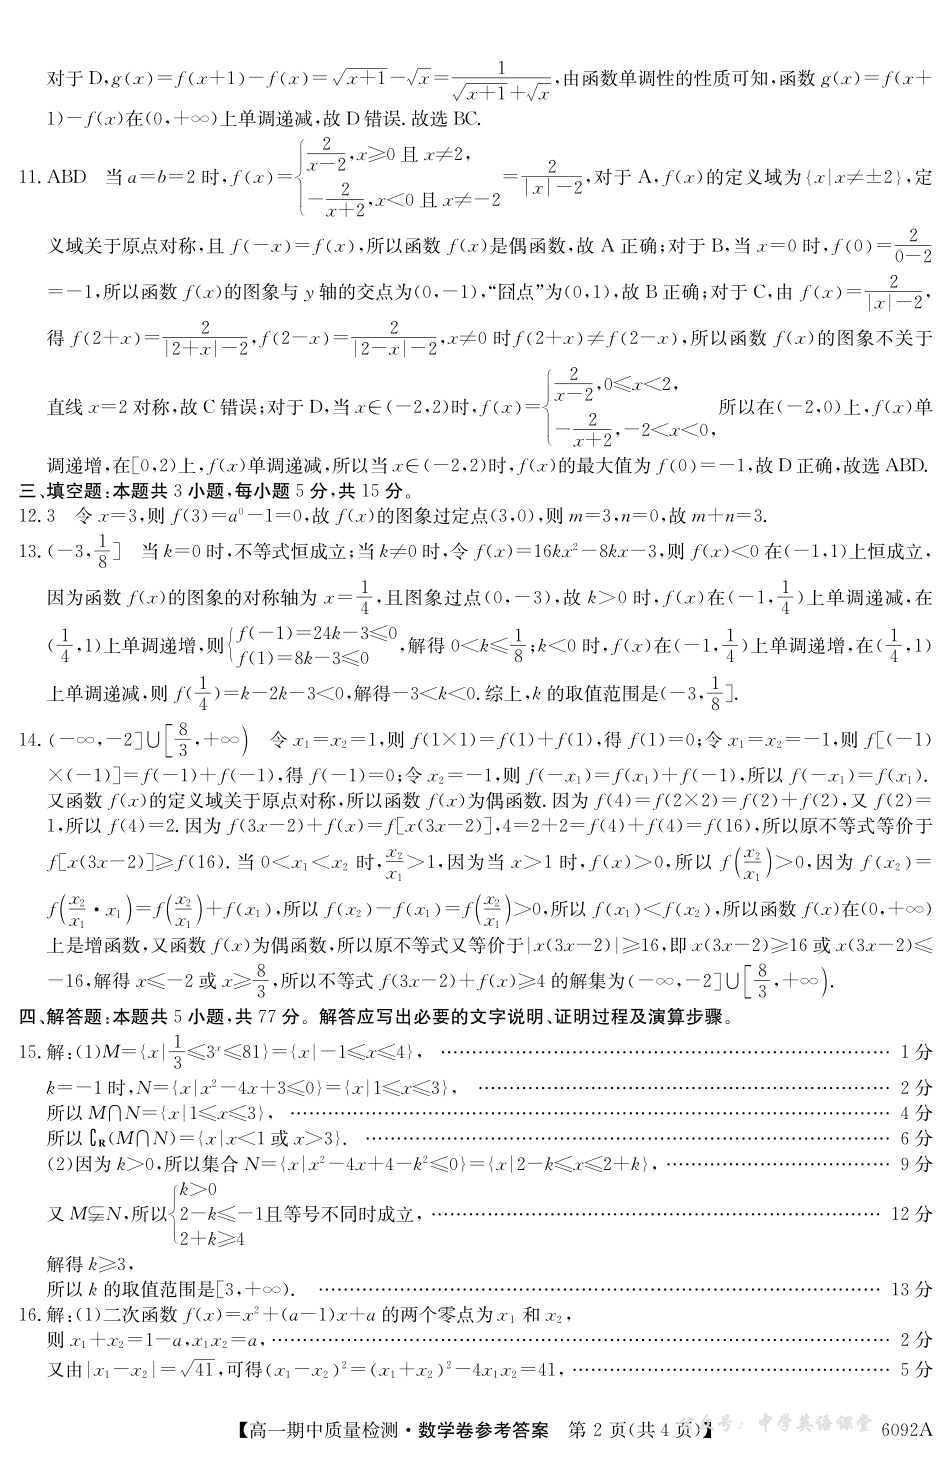 对于 D,g(x)=f(x+1)-f(x)=√(x+1)-√x=1/(√(x+1)+√x),由函数单调性的性质可知,函数 g(x)=f(x+
1)-f(x)在(0,+∞)上单调递减,故 D 错误.故选 BC.
11. ABD 当 a=b=2 时,f(x)={2/(x-2),x≥0 且 x≠2, -2/(x+2),x<0 且 x≠-2 =2/(|x|-2),对于 A,f(x)的定义域为{x|x≠±2},定
义域关于原点对称,且 f(-x)=f(x),所以函数 f(x)是偶函数,故 A 正确;对于 B,当 x=0 时,f(0)=2/(0-2)
=-1,所以函数 f(x)的图象与 y 轴的交点为(0,-1),“囧点”为(0,1),故 B 正确;对于 C,由 f(x)=2/(|x|-2),
得 f(2+x)=2/(|2+x|-2),f(2-x)=2/(|2-x|-2),x≠0 时 f(2+x)≠f(2-x),所以函数 f(x)的图象不关于
直线 x=2 对称,故 C 错误;对于 D,当 x∈(-2,2)时,f(x)={2/(x-2),0≤x<2, -2/(x+2),-2<x<0, 所以在(-2,0)上,f(x)单
调递增,在[0,2)上,f(x)单调递减,所以当 x∈(-2,2)时,f(x)的最大值为 f(0)=-1,故 D 正确,故选 ABD.
三、填空题:本题共 3 小题,每小题 5 分,共 15 分。
12. 3 令 x=3,则 f(3)=a⁰-1=0,故 f(x)的图象过定点(3,0),则 m=3,n=0,故 m+n=3.
13. (-3,1/8] 当 k=0 时,不等式恒成立;当 k≠0 时,令 f(x)=16kx²-8kx-3,则 f(x)<0 在(-1,1)上恒成立,
因为函数 f(x)的图象的对称轴为 x=1/4,且图象过点(0,-3),故 k>0 时,f(x)在(-1,1/4)上单调递减,在
(1/4,1)上单调递增,则{f(-1)=24k-3≤0 f(1)=8k-3≤0,解得 0<k≤1/8;k<0 时,f(x)在(-1,1/4)上单调递增,在(1/4,1)
上单调递减,则 f(1/4)=k-2k-3<0,解得-3<k<0.综上,k 的取值范围是(-3,1/8].
14. (-∞,-2]∪[8/3,+∞) 令 x₁=x₂=1,则 f(1×1)=f(1)+f(1),得 f(1)=0;令 x₁=x₂=-1,则 f[(-1)
×(-1)]=f(-1)+f(-1),得 f(-1)=0;令 x₂=-1,则 f(-x₁)=f(x₁)+f(-1),所以 f(-x₁)=f(x₁).
又函数 f(x)的定义域关于原点对称,所以函数 f(x)为偶函数.因为 f(4)=f(2×2)=f(2)+f(2),又 f(2)=
1,所以 f(4)=2.因为 f(3x-2)+f(x)=f[x(3x-2)],4=2+2=f(4)+f(4)=f(16),所以原不等式等价于
f[x(3x-2)]≥f(16).当 0<x₁<x₂ 时,x₂/x₁>1,因为当 x>1 时,f(x)>0,所以 f(x₂/x₁)>0,因为 f(x₂)=
f(x₂/x₁·x₁)=f(x₂/x₁)+f(x₁),所以 f(x₂)-f(x₁)=f(x₂/x₁)>0,所以 f(x₁)<f(x₂),所以函数 f(x)在(0,+∞)
上是增函数,又函数 f(x)为偶函数,所以原不等式又等价于|x(3x-2)|≥16,即 x(3x-2)≥16 或 x(3x-2)≤
-16,解得 x≤-2 或 x≥8/3,所以不等式 f(3x-2)+f(x)≥4 的解集为(-∞,-2]∪[8/3,+∞).
四、解答题:本题共 5 小题,共 77 分。解答应写出必要的文字说明、证明过程及演算步骤。
15. 解:(1)M={x|1/3≤3ˣ≤81}={x|-1≤x≤4}, …… 1 分
k=-1 时,N={x|x²-4x+3≤0}={x|1≤x≤3}, …… 2 分
所以 M∩N={x|1≤x≤3}, …… 4 分
所以 ∁R(M∩N)={x|x<1 或 x>3}. …… 6 分
(2)因为 k>0,所以集合 N={x|x²-4x+4-k²≤0}={x|2-k≤x≤2+k}, …… 9 分
又 M⫋N,所以{k>0 2-k≤-1 2+k≥4 且等号不同时成立, …… 12 分
解得 k≥3,
所以 k 的取值范围是[3,+∞). …… 13 分
16. 解:(1)二次函数 f(x)=x²+(a-1)x+a 的两个零点为 x₁ 和 x₂,
则 x₁+x₂=1-a,x₁x₂=a, …… 2 分
又由|x₁-x₂|=√41,可得(x₁-x₂)²=(x₁+x₂)²-4x₁x₂=41, …… 5 分
【高一期中质量检测·数学卷参考答案 第 2 页(共 4 页)】 号:中学英语课堂 6092A